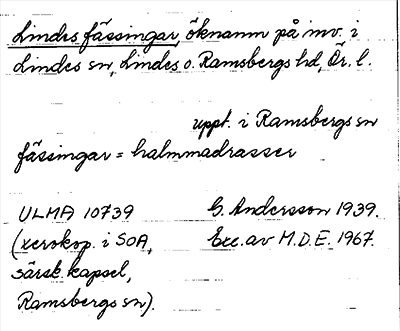 Lindes fässingar, öknamn på inv. i
Lindes sn, Lindes o. Ramsbergs hd, Ör. l.
uppt. i Ramsbergs sn
fässingar = halmmadrasser
ULMA 10739
(xerokop. i SOA,
särsk. kapsel,
Ramsbergs sn).
G. Andersson 1939.
Exc. av M.D.E. 1967.